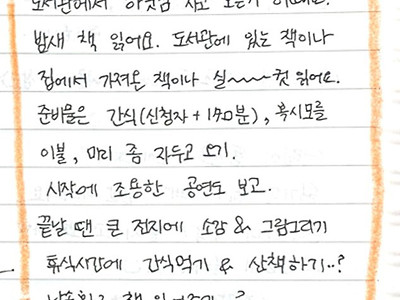 밤새 책 읽어요. 도서관에 있는 책이나
집에서 가져온 책이나 실~~~컷 읽어요.
준비물은 간식(신청자 + 1명분), 혹시모를
이불, 미리 좀 자두고 오기.
시작에 조용한 공연도 보고.
끝날 땐 큰 전지에 소감 & 그림그리기
휴식시간에 간식먹기 & 산책하기..?